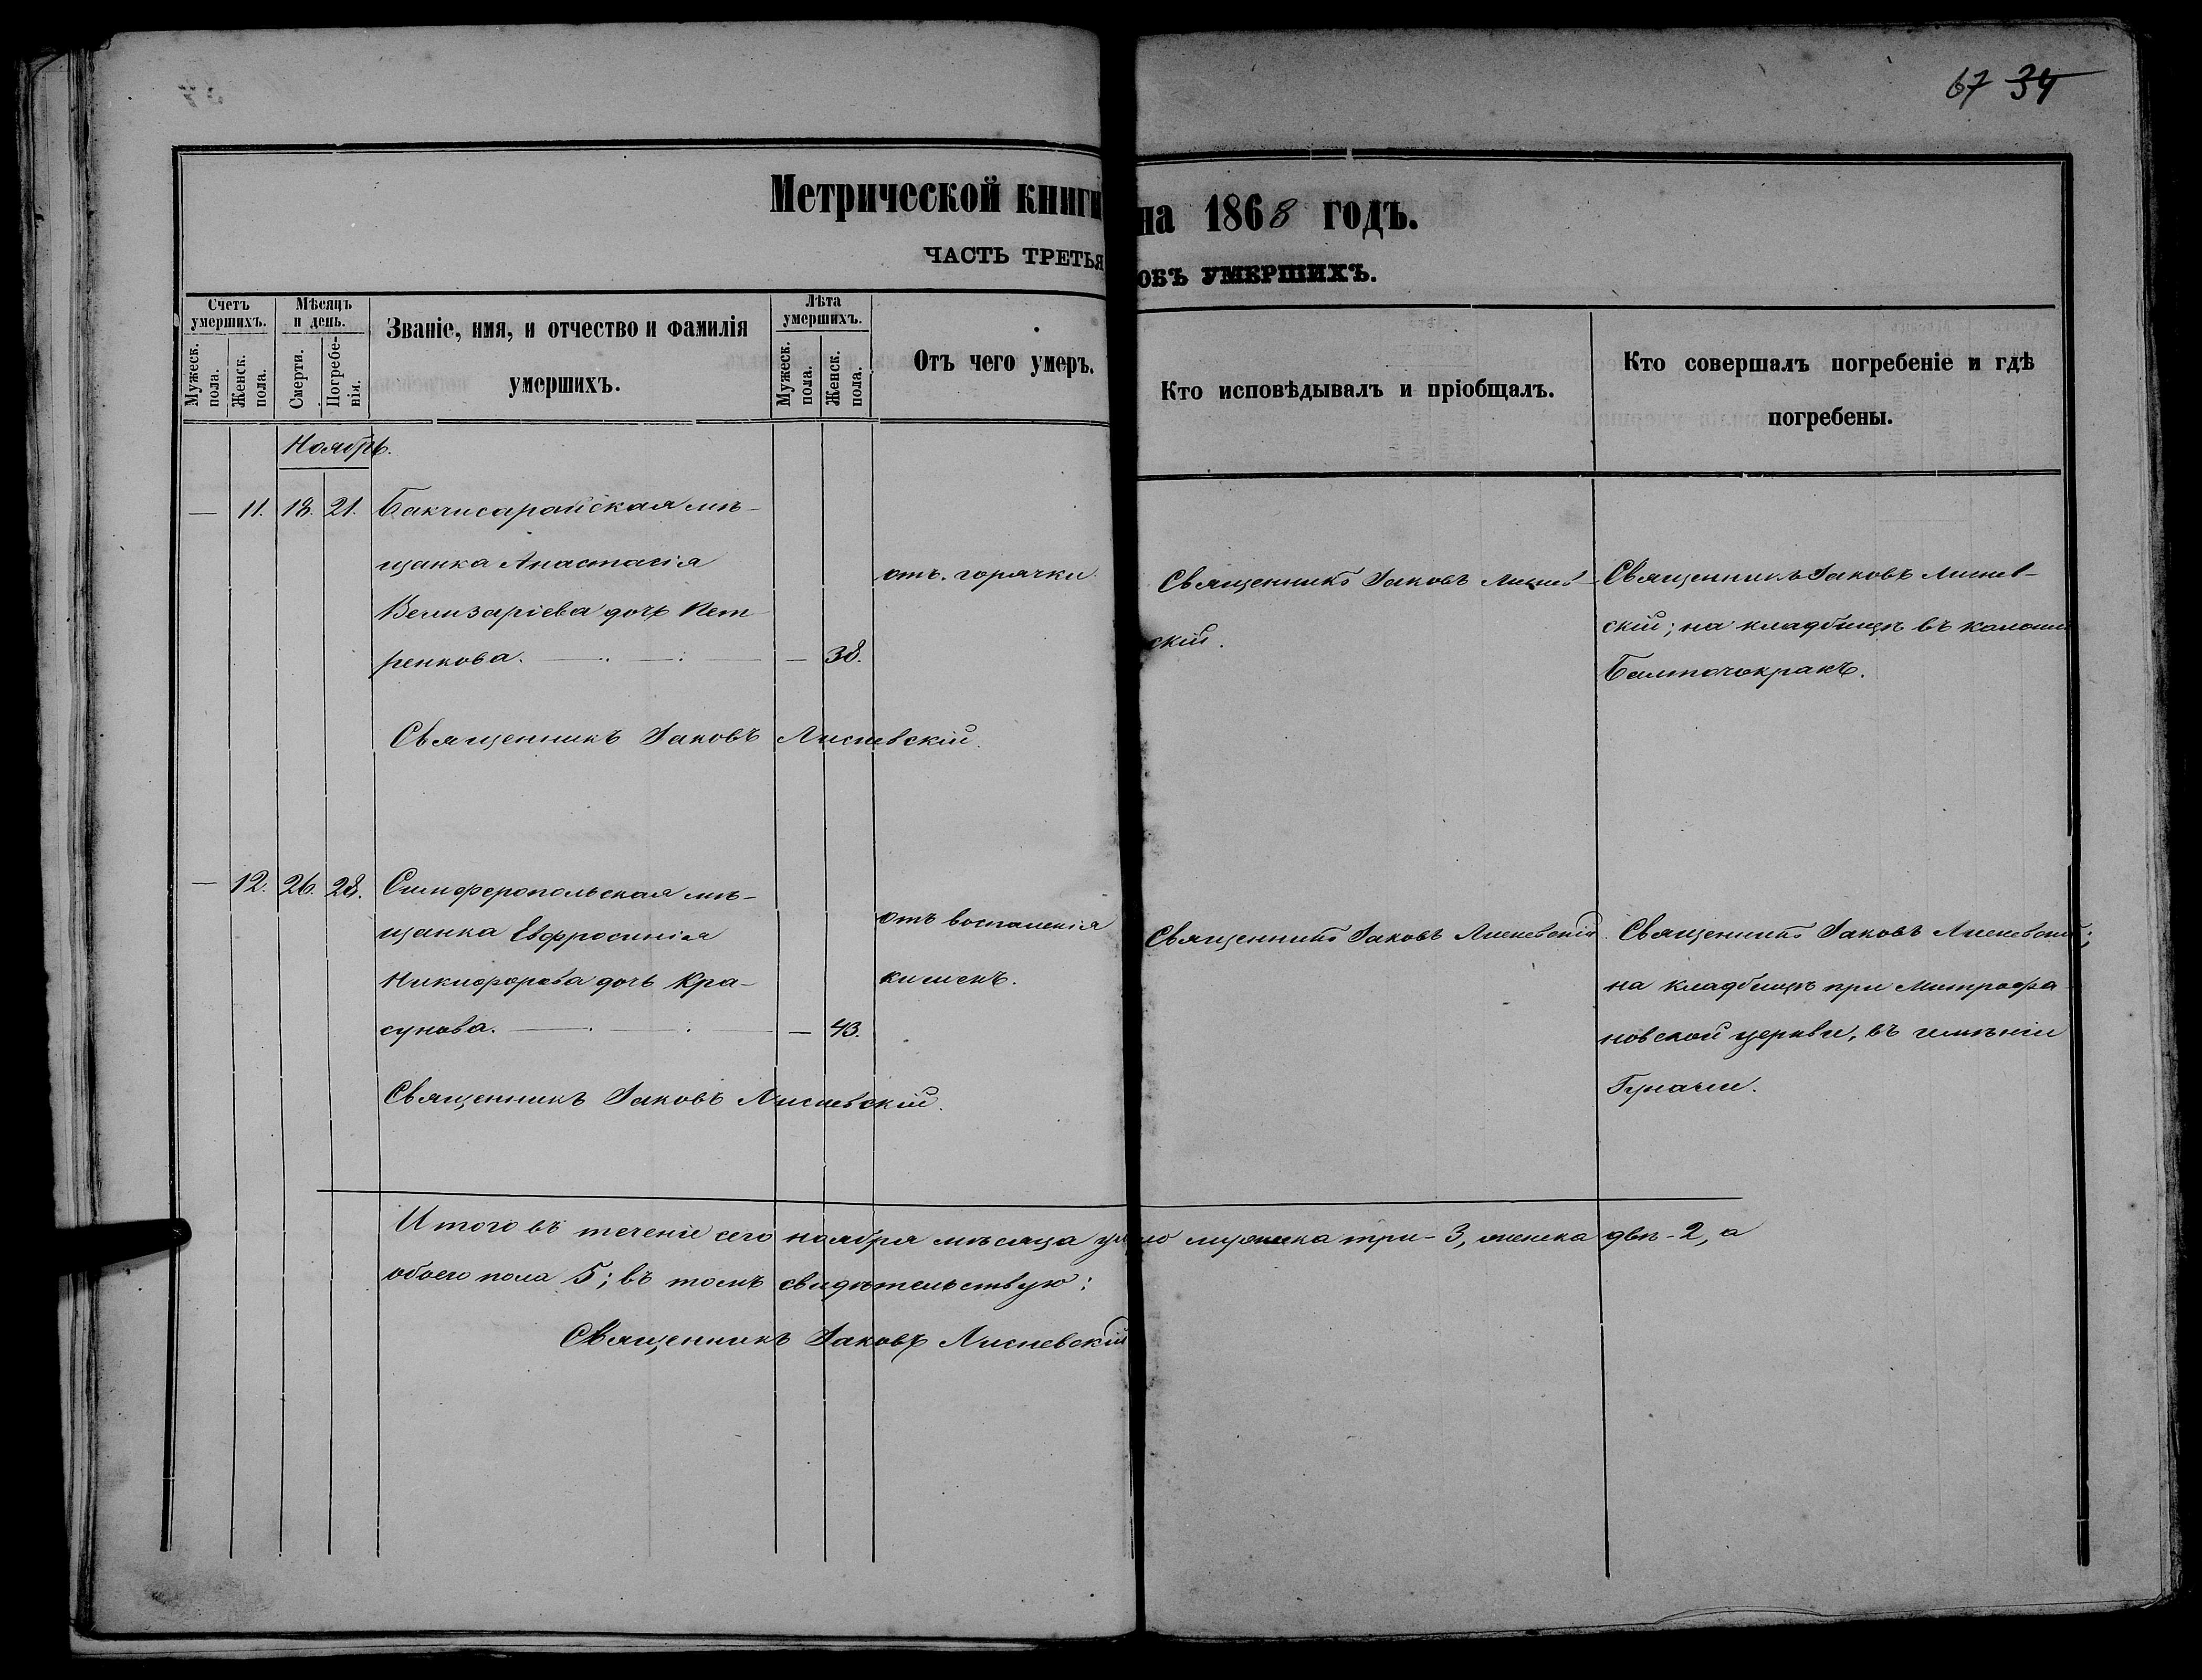 67 34
Метрической книги на 1868 годъ.
ЧАСТЬ ТРЕТЬЯ ОБЪ УМЕРШИХЪ.
Счетъ умершихъ.
Мужеск. пола.
Женск. пола.
Мѣсяцъ и день.
Смерти.
Погребенія.
Званіе, имя, и отчество и фамилія
умершихъ.
Лѣта умершихъ.
Мужеск. пола.
Женск. пола.
Отъ чего умеръ.
Кто исповѣдывалъ и пріобщалъ.
Кто совершалъ погребеніе и гдѣ
погребены.
Ноябрь.
— 11. 18. 21. Бакчисарайская мѣ-
щанка Анастасія
Велизаріева дочь Пет
ренкова. — 38.
отъ горячки
Священникъ Іаковъ Лиснев-
скій.
Священникъ Іаковъ Лиснев-
скій; на кладбищѣ въ
Священникъ Іаковъ Лисневскій.
— 12. 26. 28. Симферопольская мѣ-
щанка Евфросинія
Никифорова дочь Кра-
сунова. — 43.
отъ воспаленія
кишекъ.
Священникъ Іаковъ Лисневскій.
Священникъ Іаковъ Лисневскій;
на кладбищѣ при Митрофа
новской церкви, въ имѣніи
Священникъ Іаковъ Лисневскій.
Итого въ теченіе сего ноября мѣсяца умерло мужеска три - 3, женска двѣ - 2, а
обоего пола 5; въ томъ свидѣтельствую:
Священникъ Іаковъ Лисневскій